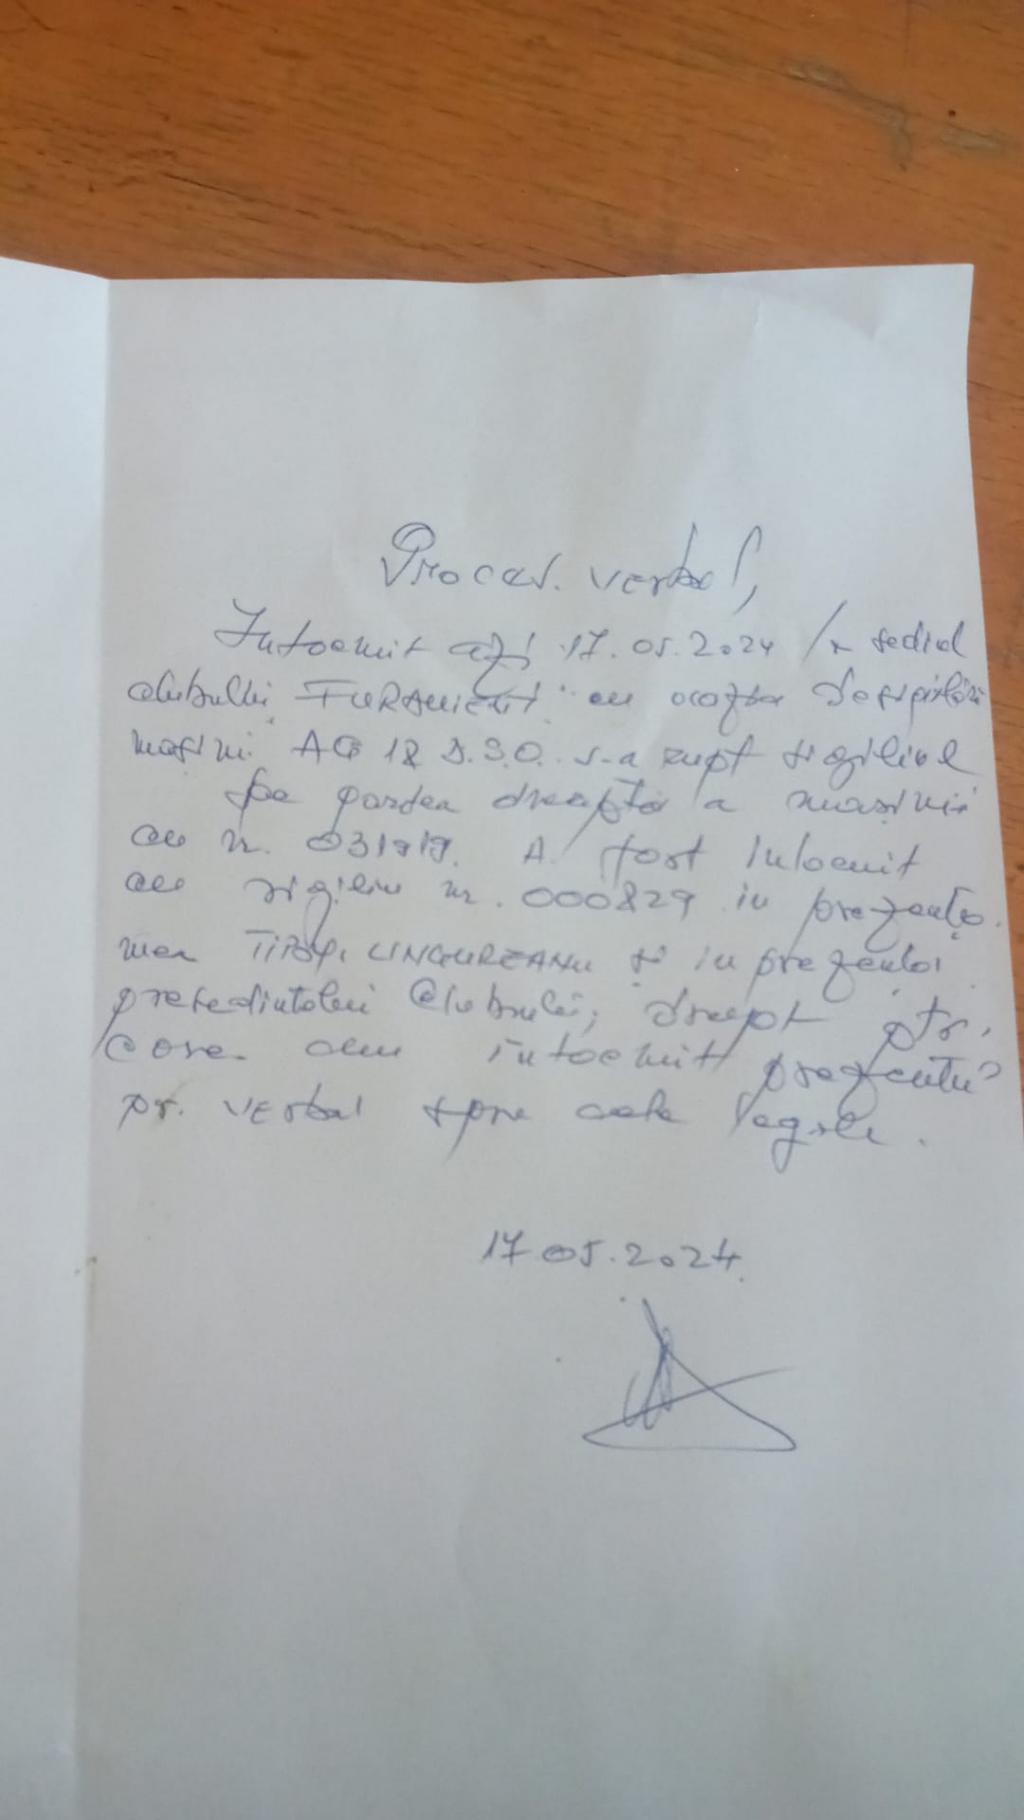 Proces. verbal,
Întocmit azi 17.05.2024 la sediul
clubului cu ocazia desigilării
mașini AG 18 D.S.O. s-a rupt sigiliul
pe partea dreaptă a mașinii
cu nr. 031919. A fost înlocuit
cu sigiliu nr. 000829 in prezența
mea LINGUREANU și in prezența
președintelui Clubului, drept ptr.
care am întocmit prezentul
pr. verbal spre cele legale.
17.05.2024.